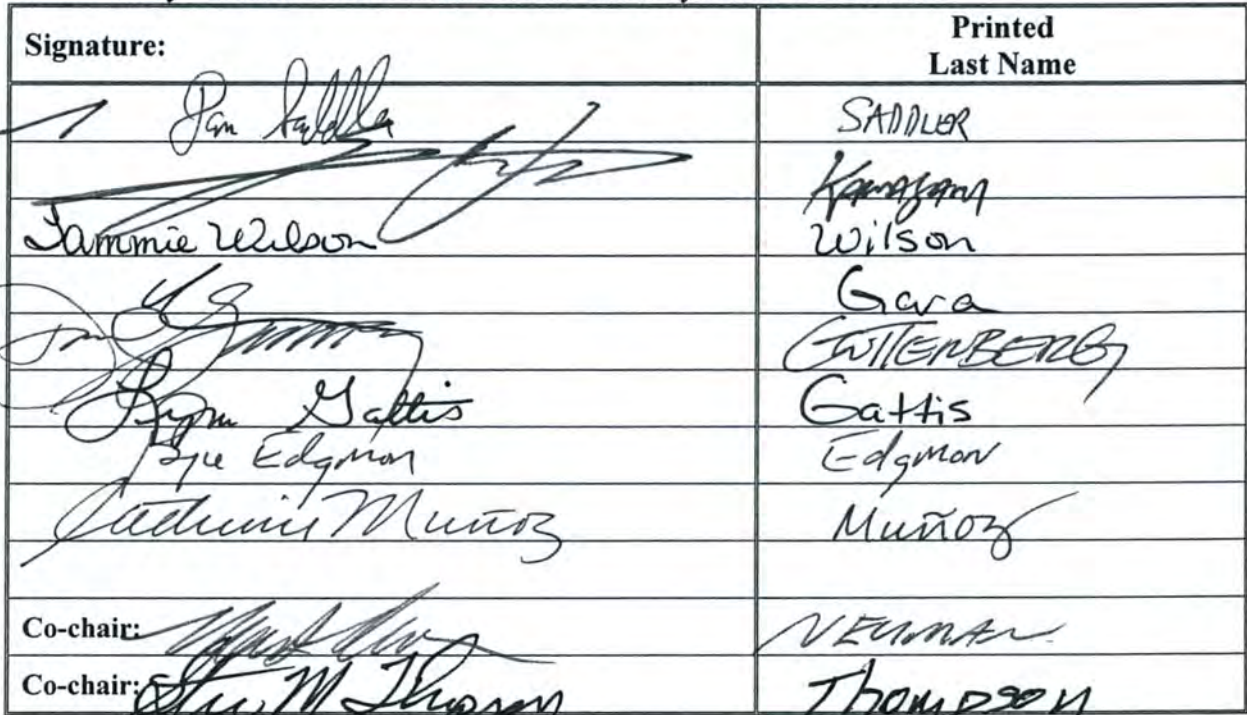 Signature: Printed
Last Name
Dan Saddler SADDLER
Tammie Wilson Wilson
Gara
GUTTENBERG
Lynn Gattis Gattis
Edgmon Edgmon
Cathy Muñoz Muñoz
Co-chair: NEUMAN
Co-chair: Steve M Thompson Thompson